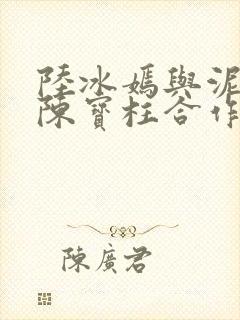 陸冰嫣與泥
陳寶柱合作
陳廣君